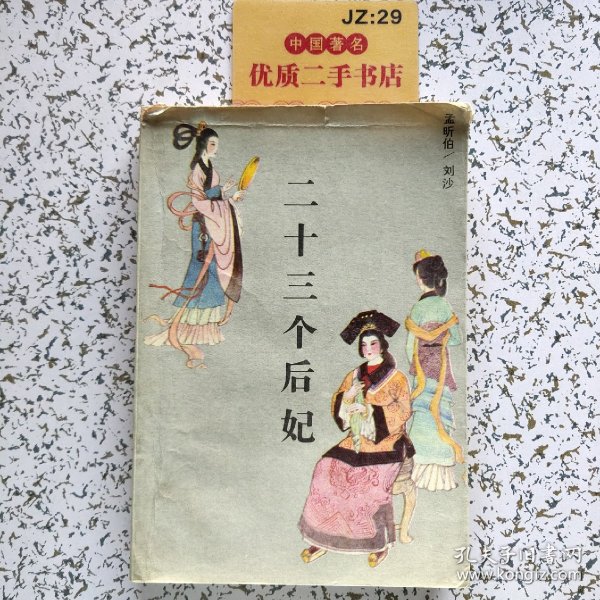 JZ:29
中国著名
优质二手书店
孟昕伯/刘沙
二十三个后妃
孔夫子旧书网
www.kongfz.com